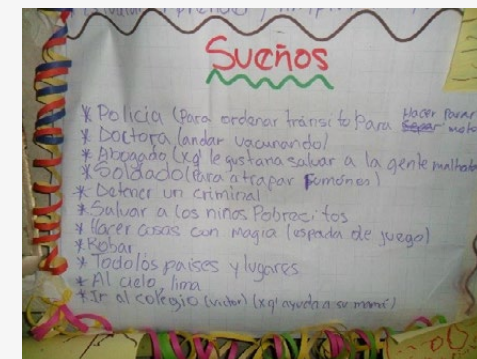 Sueños
* Policia (Para ordenar tránsito Para Hacer Parar moto
* Doctora (andar vacunando)
* Abogado (xq' le gustaria salvar a la gente maltrata
* Soldado (Para atrapar Fumónes)
* Detener un criminal
* Salvar a los niños Pobrecitos
* Hacer cosas con magia (espada de juego)
* Robar
* Todo lós paises y lugares
* Al cielo, lima
* Ir al colegio (varior) (xq' ayuda a su mamá)